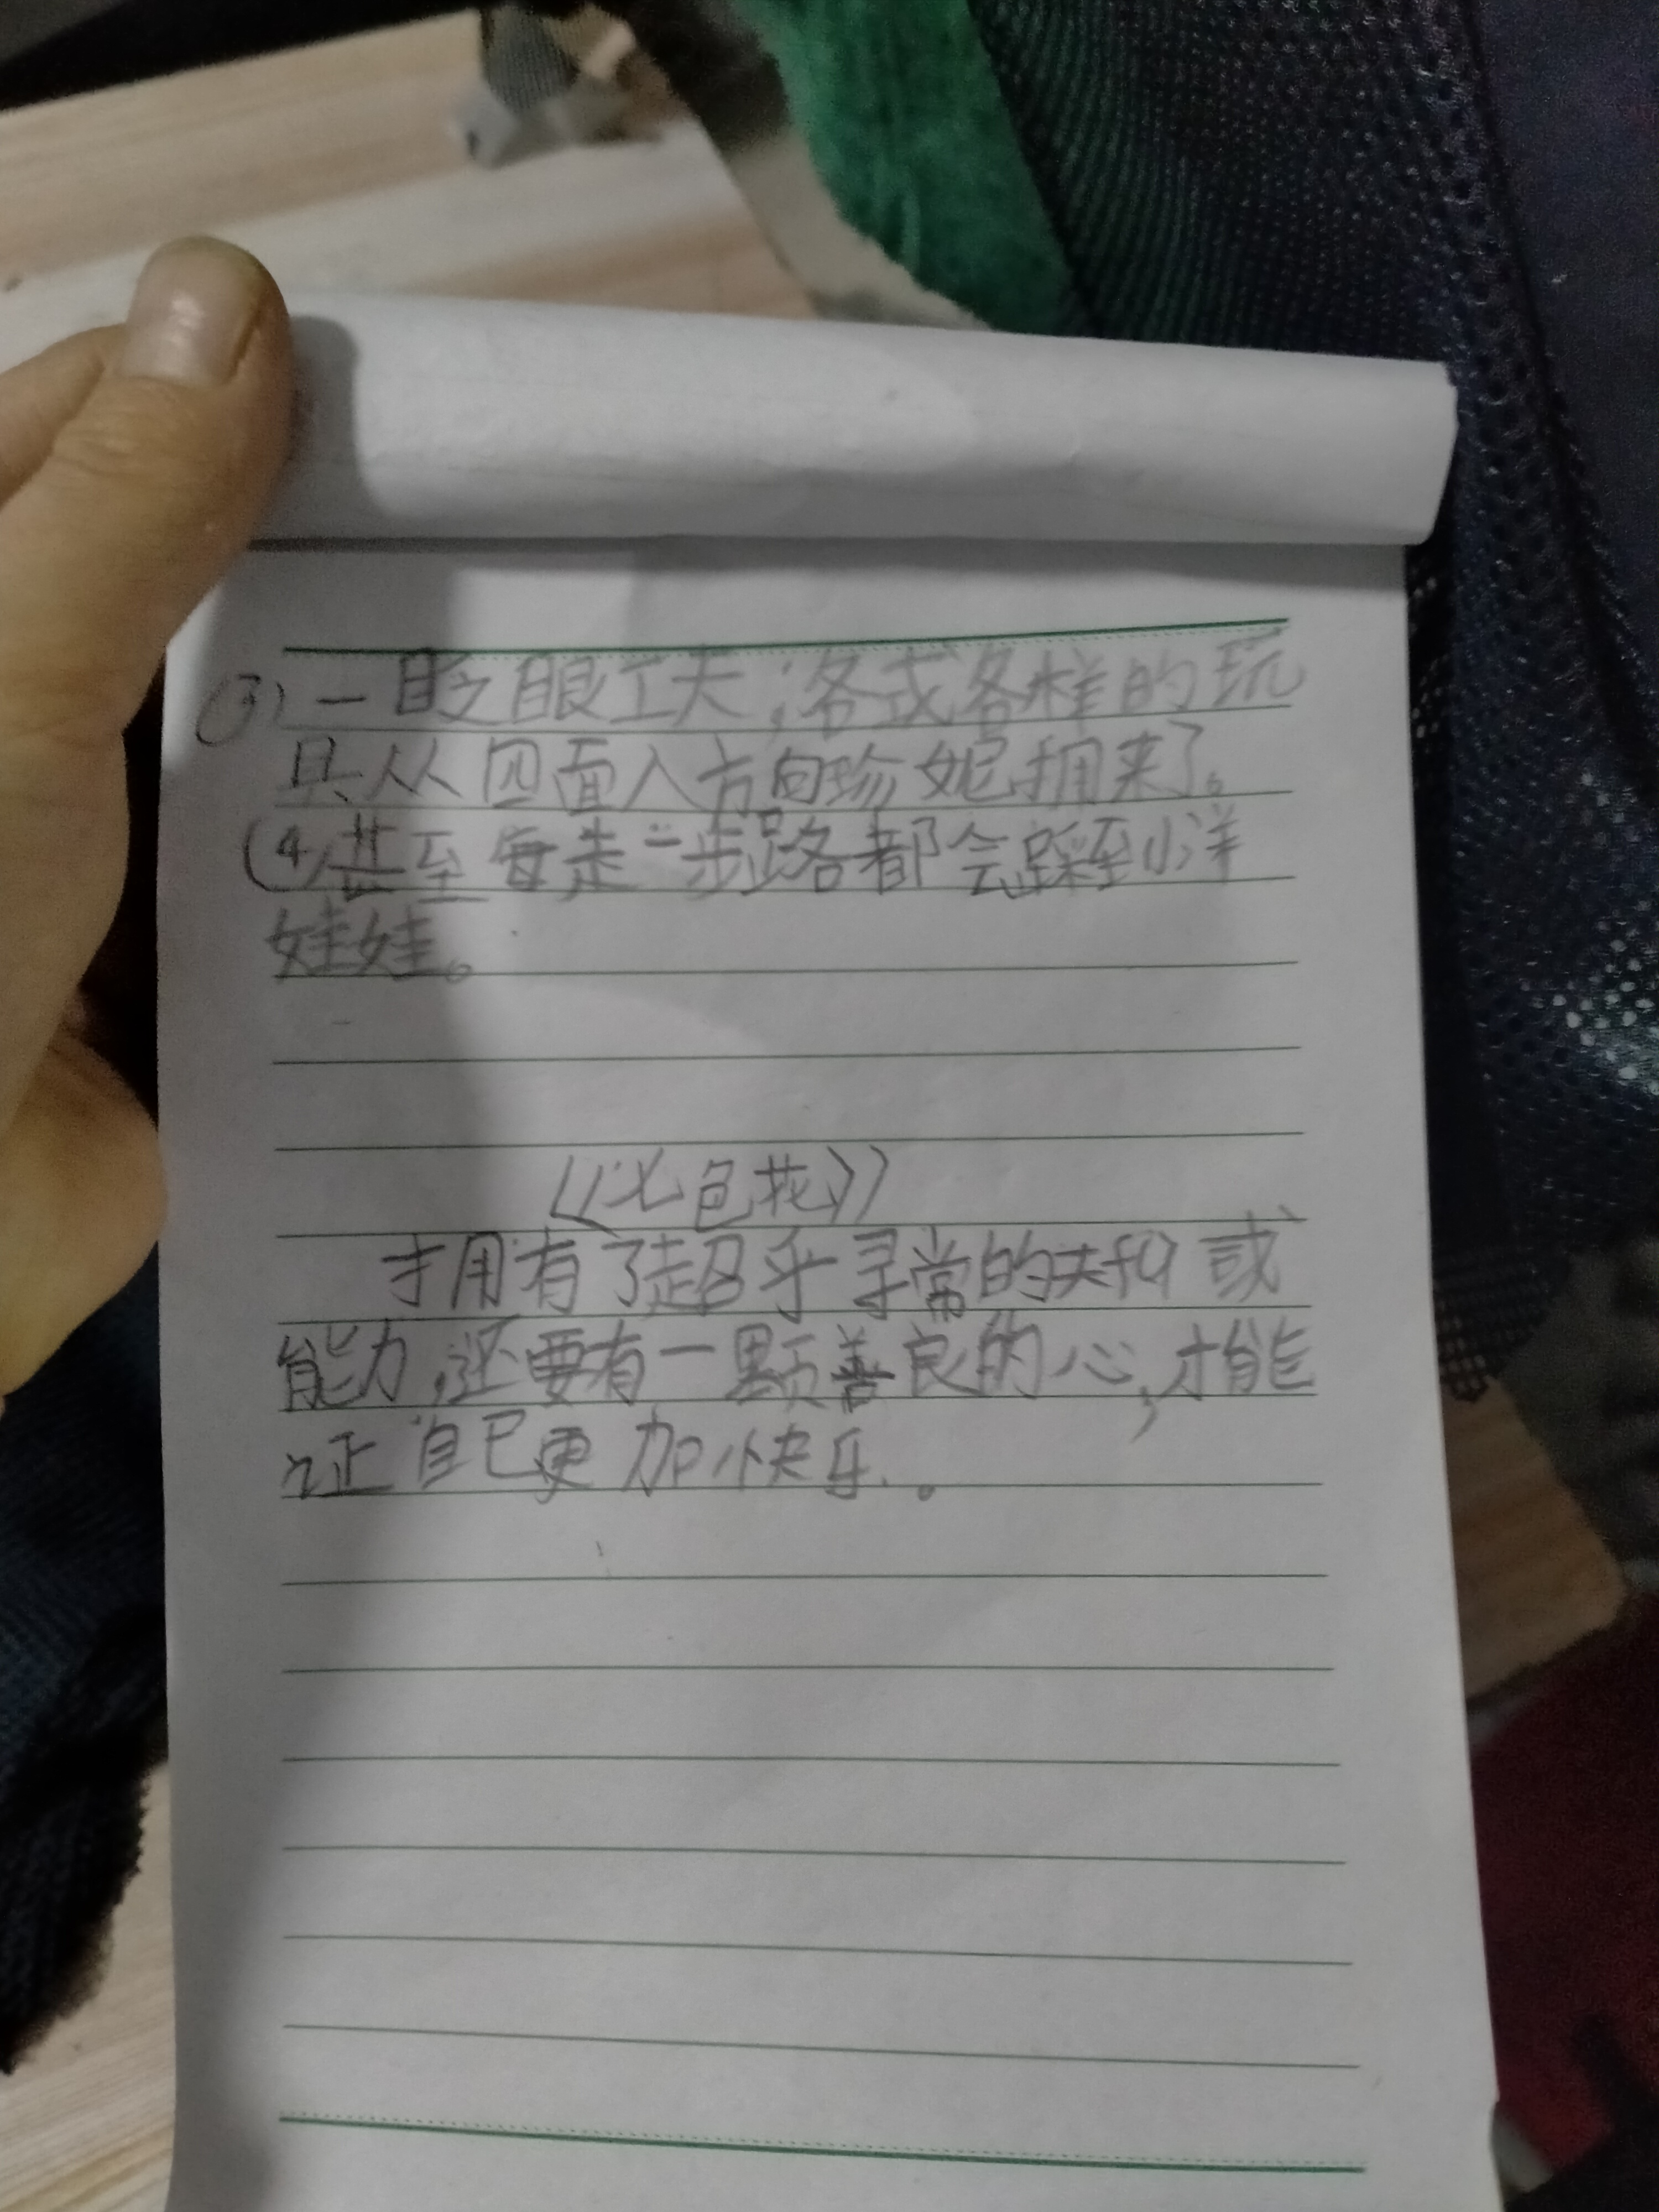 (3)一眨眼工夫;各式各样的玩
具从四面八方向珍妮拥来了。
(4)甚至每走一步路都会踩到小洋
娃娃。
《七色花》
拥有了超乎寻常的 或
能力,还要有一颗善良的心,才能
让自己更加快乐。